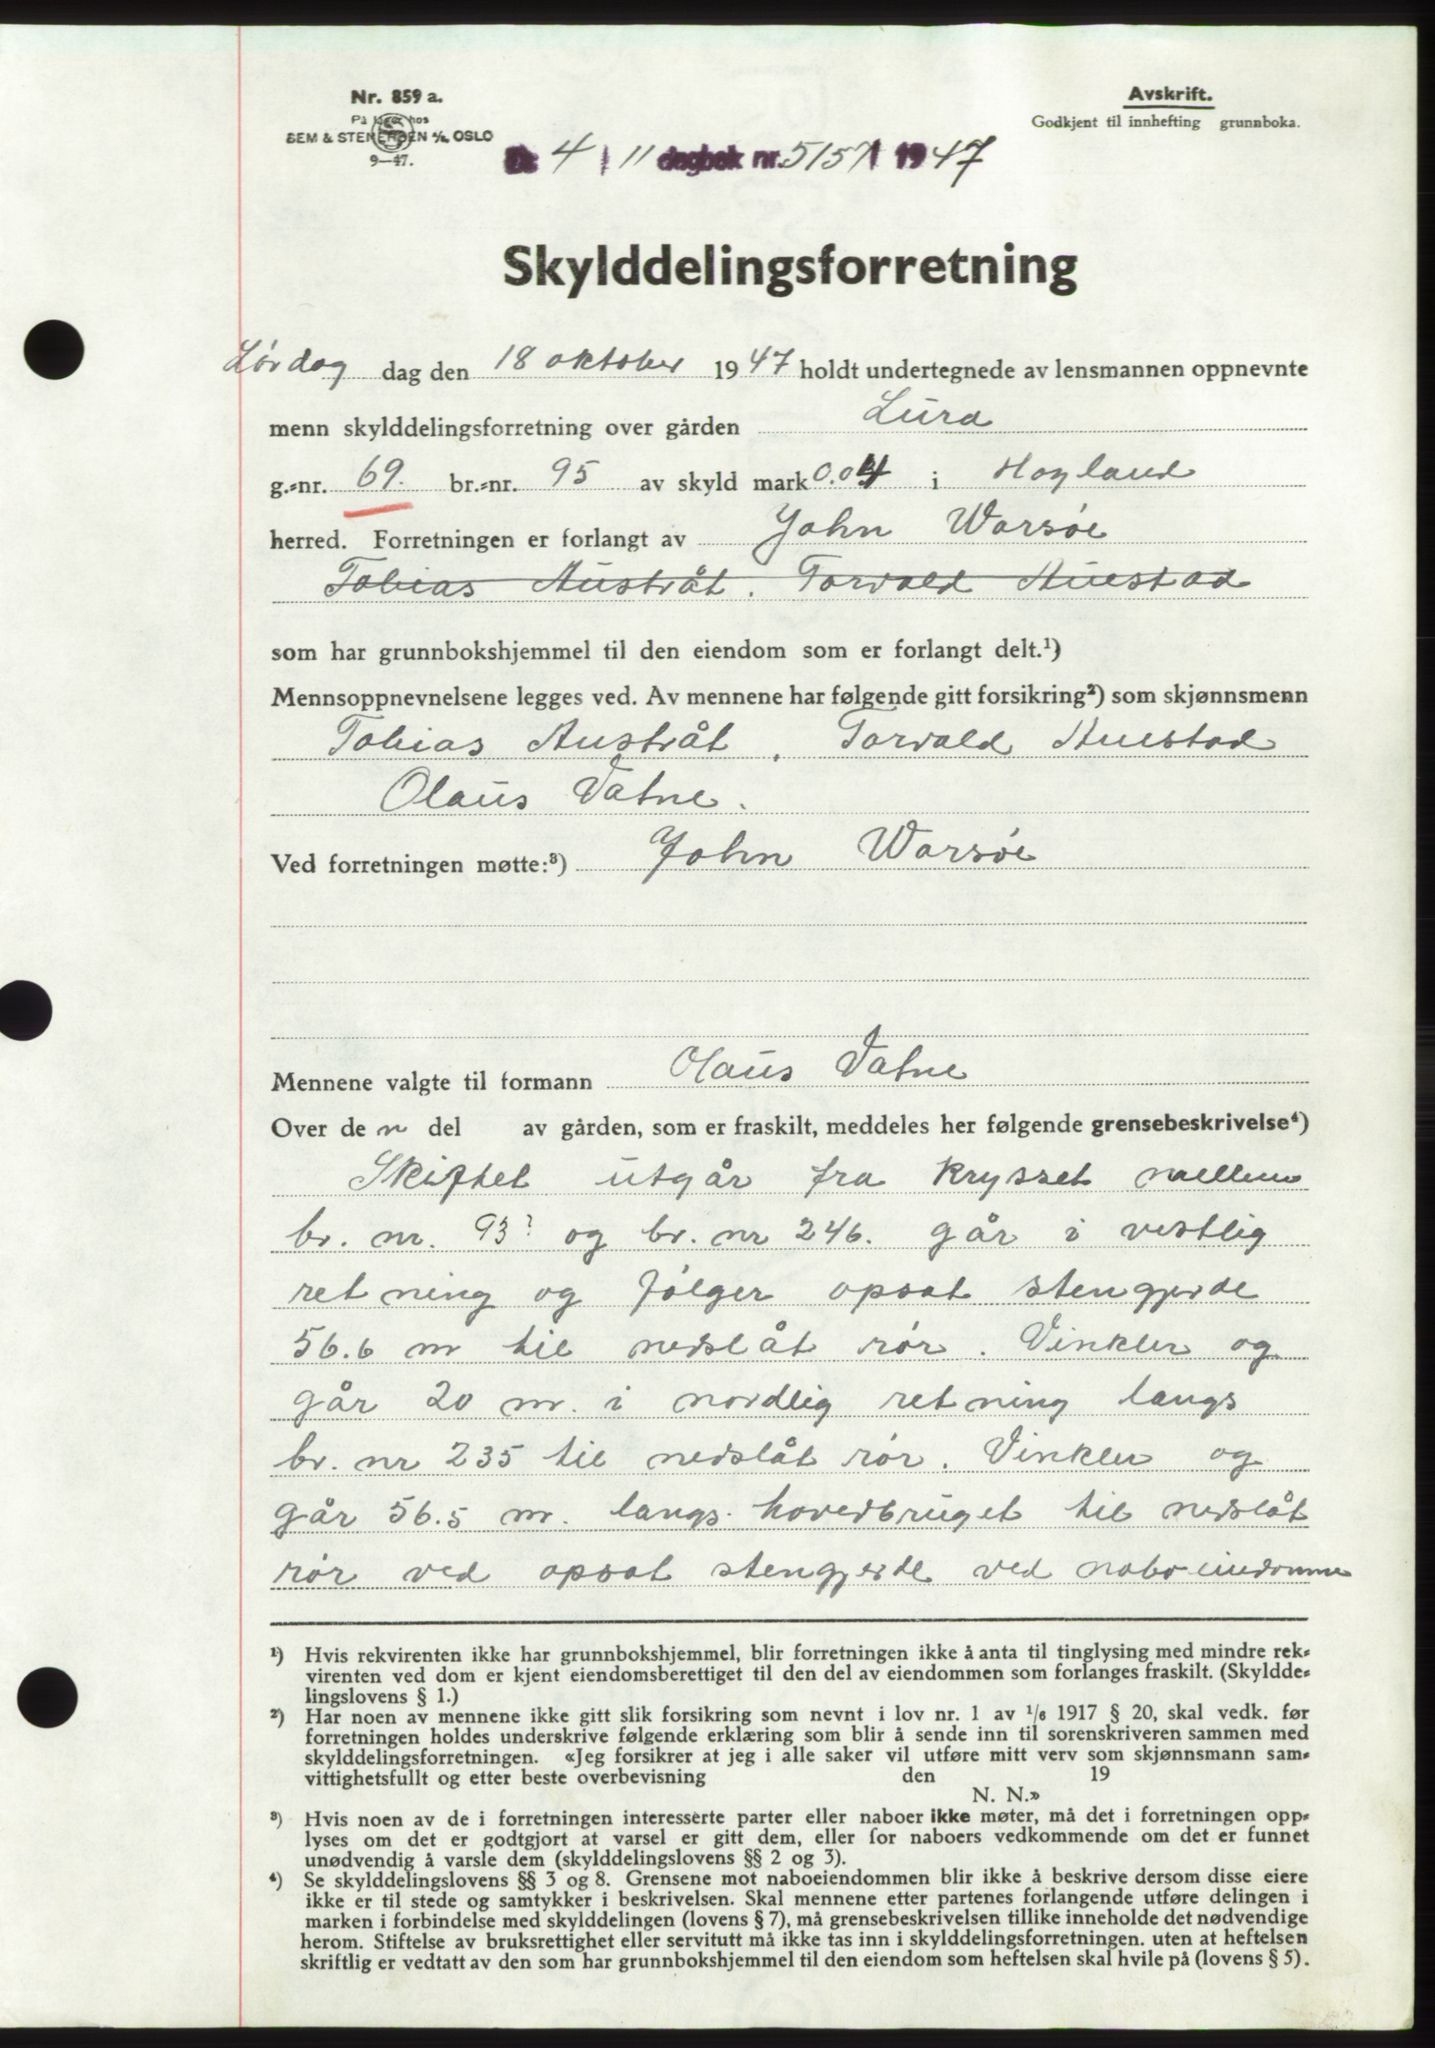 Nr. 859 a.
På lager hos
SEM & STENERSEN A/S OSLO
9—47.
Avskrift.
Godkjent til innhefting grunnboka.
4 / 11 dagbok nr. 5157 / 1947
Skylddelingsforretning
Lördag dag den 18 oktober 1947 holdt undertegnede av lensmannen oppnevnte
menn skylddelingsforretning over gården Lura
g.=nr. 69. br.=nr. 95 av skyld mark 0.04 i Høyland
herred. Forretningen er forlangt av John Warsøe
Tobias Austråt. Torvald Auestad
som har grunnbokshjemmel til den eiendom som er forlangt delt.¹)
Mennsoppnevnelsene legges ved. Av mennene har følgende gitt forsikring²) som skjønnsmenn
Tobias Austråt, Torvald Auestad
Olaus Vatne.
Ved forretningen møtte:³) John Warsøe
Mennene valgte til formann Olaus Vatne
Over de n del av gården, som er fraskilt, meddeles her følgende grensebeskrivelse⁴)
Skiftet utgår fra krysset mellem
br. nr. 93? og br. nr 246. går i vestlig
retning og følger opsat stengjerde
56.6 m til nedslåt rör. Vinkler og
går 20 m. i nordlig retning langs
br. nr 235 til nedslåt rör. Vinkler og
går 56.5 m. langs hovedbruget til nedslåt
rör ved opsat stengjerde ved naboeiendomme
¹) Hvis rekvirenten ikke har grunnbokshjemmel, blir forretningen ikke å anta til tinglysing med mindre rek=
virenten ved dom er kjent eiendomsberettiget til den del av eiendommen som forlanges fraskilt. (Skyldde=
lingslovens § 1.)
²) Har noen av mennene ikke gitt slik forsikring som nevnt i lov nr. 1 av 1/6 1917 § 20, skal vedk. før
forretningen holdes underskrive følgende erklæring som blir å sende inn til sorenskriveren sammen med
skylddelingsforretningen. «Jeg forsikrer at jeg i alle saker vil utføre mitt verv som skjønnsmann sam=
vittighetsfullt og etter beste overbevisning den 19
N. N.»
³) Hvis noen av de i forretningen interesserte parter eller naboer ikke møter, må det i forretningen opp=
lyses om det er godtgjort at varsel er gitt dem, eller for naboers vedkommende om det er funnet
unødvendig å varsle dem (skylddelingslovens §§ 2 og 3).
⁴) Se skylddelingslovens §§ 3 og 8. Grensene mot naboeiendommen blir ikke å beskrive dersom disse eiere
ikke er til stede og samtykker i beskrivelsen. Skal mennene etter partenes forlangende utføre delingen i
marken i forbindelse med skylddelingen (lovens § 7), må grensebeskrivelsen tillike inneholde det nødvendige
herom. Stiftelse av bruksrettighet eller servitutt må ikke tas inn i skylddelingsforretningen. uten at heftelsen
skriftlig er vedtatt av den som har grunnbokshjemmel til den eiendom som heftelsen skal hvile på (lovens § 5).